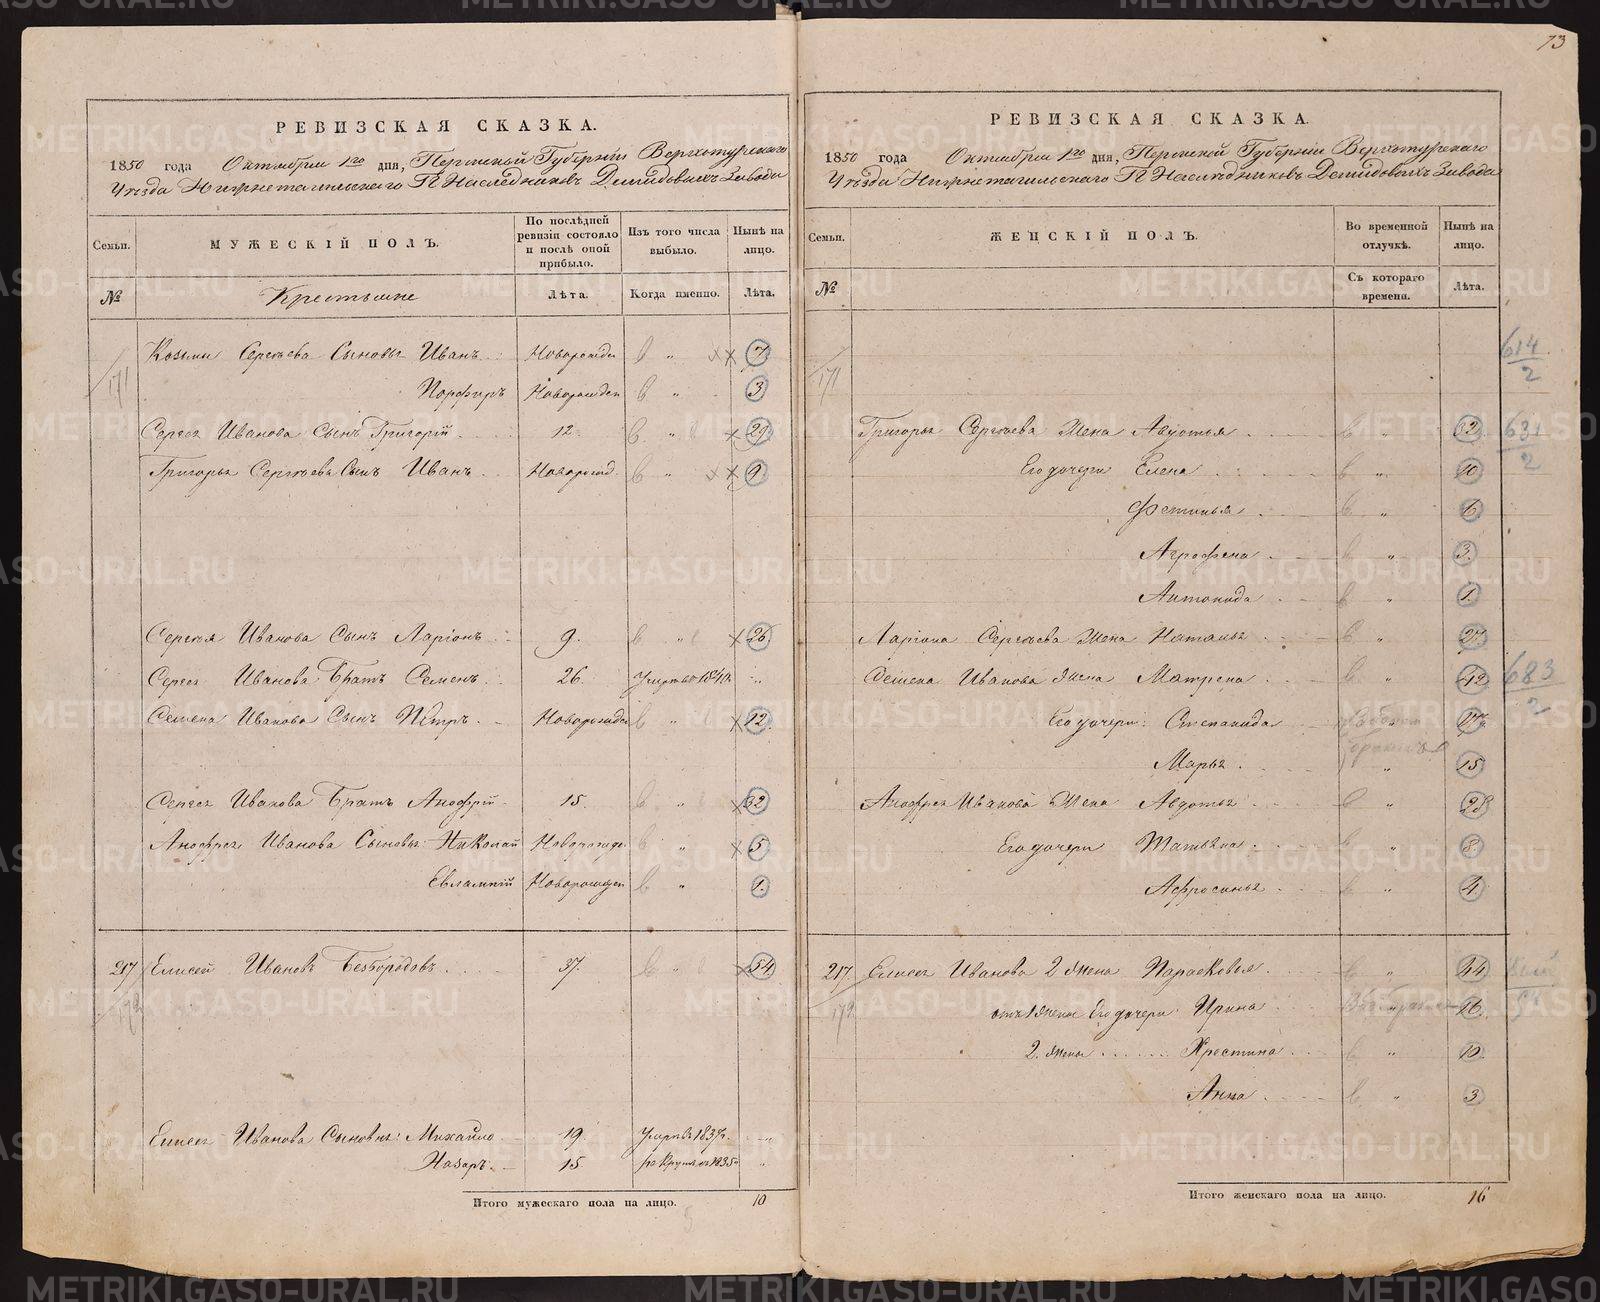 73
РЕВИЗСКАЯ СКАЗКА.
1850 года Октября 1го дня, Пермской Губерніи Верхотурскаго
Уѣзда Нижнетагильскаго Г. Наслѣдниковъ Демидовыхъ Завода
Семьи. МУЖЕСКІЙ ПОЛЪ. По послѣдней ревизіи состояло и послѣ оной прибыло. Изъ того числа выбыло. Нынѣ на лицо.
№ Крестьяне Лѣта. Когда именно. Лѣта.
171 Козьмы Сергѣева Сыновья Иванъ Новорожден „ 7
Порфиръ Новорожден „ 3
Сергея Иванова Сынъ Григорій 12. „ 29
Григорья Сергѣева Сынъ Иванъ Новорожд. „ 9
Сергѣя Иванова Сынъ Ларіонъ 9. „ 26
Сергея Иванова Братъ Семенъ 26. Умръ 1840.
Семена Иванова Сынъ Пётръ Новорожден „ 12.
Сергея Иванова Братъ Анофрій 15. „ 32
Анофрея Иванова Сыновья: Николай Новорожде. „ 5
Евлампій Новорожден „ 1.
217 Елисей Ивановъ Безбородовъ 37. „ 54
172
Елисея Иванова Сыновья: Михайло 19. Умръ 1837. „
Назаръ. 15. рекрутъ 1835 „
Итого мужескаго пола на лицо. 10
РЕВИЗСКАЯ СКАЗКА.
1850 года Октября 1го дня, Пермской Губерніи Верхотурскаго
Уѣзда Нижнетагильскаго Г. Наслѣдниковъ Демидовыхъ Завода
Семьи. ЖЕНСКІЙ ПОЛЪ. Во временной отлучкѣ. Нынѣ на лицо.
№ Съ котораго времени. Лѣта.
171 614/2
Григорья Сергѣева Жена Авдотья „ 32 631/2
Его дочери Елена „ 10
Фетинья „ 6
Агрофена „ 3.
Антонида „ 1.
Ларіона Сергѣева Жена Наталья „ 27
Семена Иванова Жена Матрена „ 42 683/2
Его дочери: Степанида 17.
Марья „ 15
Анофрея Иванова Жена Авдотья „ 28
Его дочери Татьяна „ 8.
Афросинья „ 4.
217. Елисея Иванова 2 жена Парасковья „ 44
172 отъ 1 жены Его дочери: Ирина 16.
2. жены Христина „ 10
Анна „ 3
Итого женскаго пола на лицо. 16
METRIKI.GASO-URAL.RU